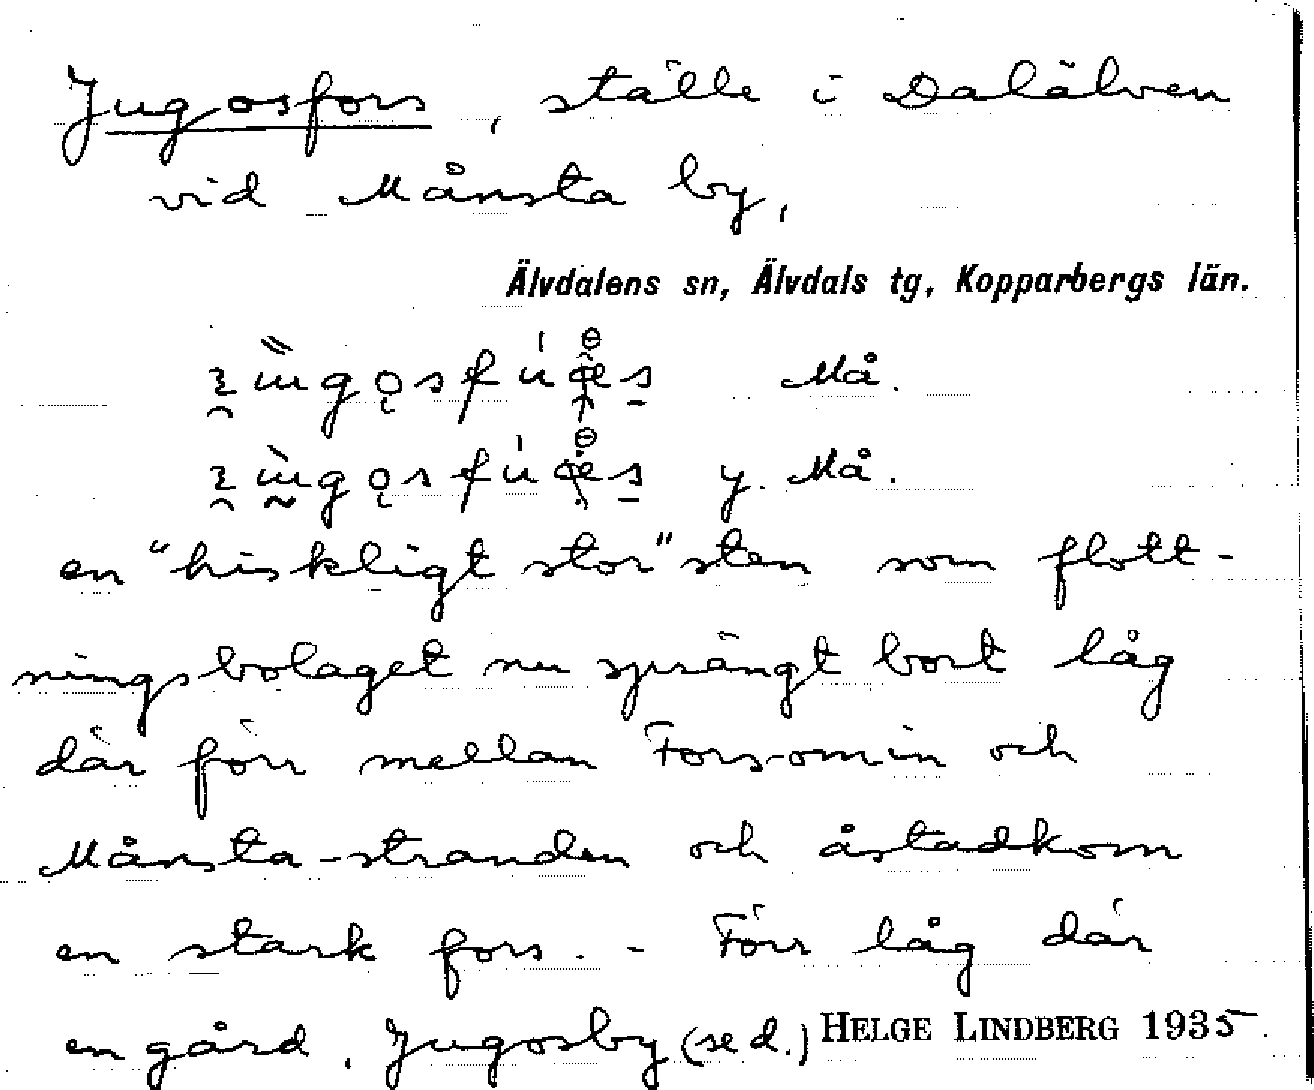 Jugosfors, ställe i Dalälven
vid Månsta by,
Älvdalens sn, Älvdals tg, Kopparbergs län.
Må.
y. Må.
en "hiskligt stor" sten som flott-
ningsbolaget nu sprängt bort låg
där förr mellan Forsomin och
Månsta-stranden och åstadkom
en stark fors. - Förr låg där
en gård, Jugosby (se d.) HELGE LINDBERG 1935.